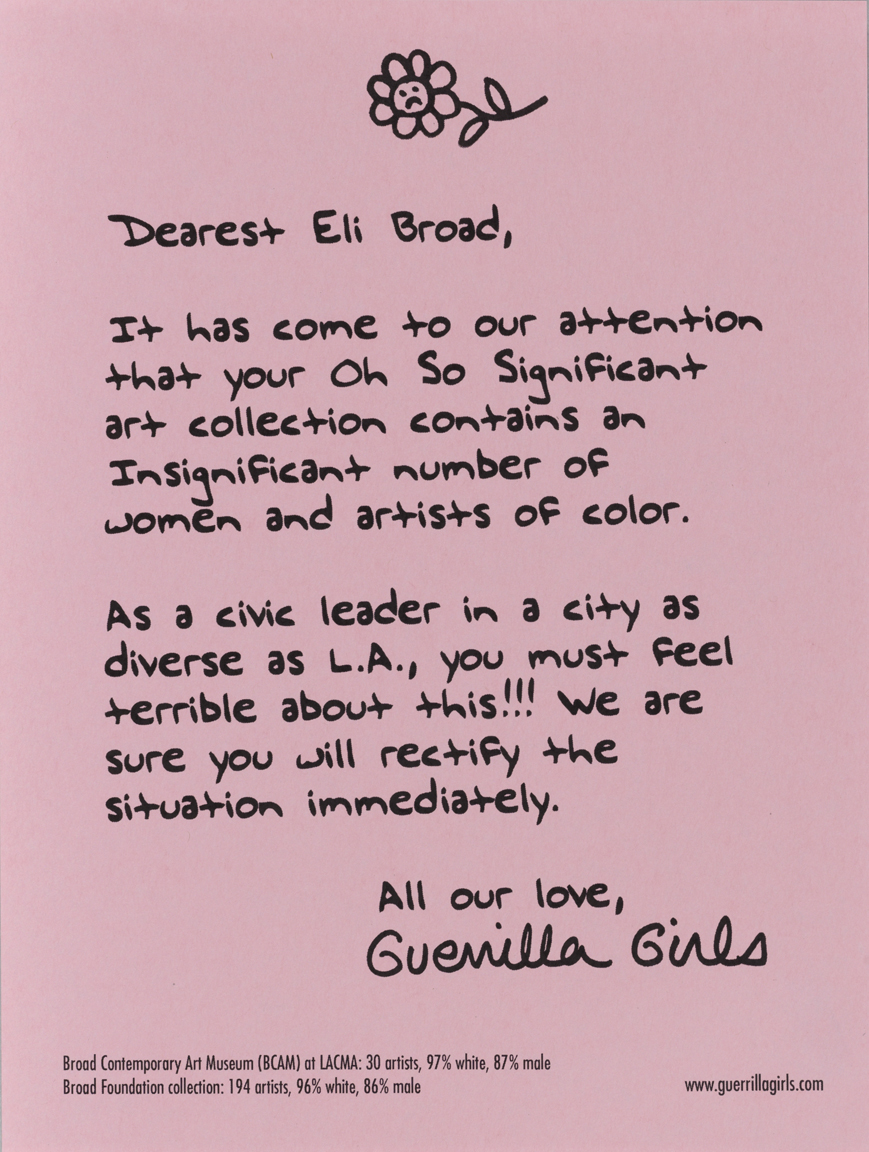 Dearest Eli Broad,
It has come to our attention
that your Oh So Significant
art collection contains an
Insignificant number of
women and artists of color.
As a civic leader in a city as
diverse as L.A., you must feel
terrible about this!!! We are
sure you will rectify the
situation immediately.
All our love,
Guerrilla Girls
Broad Contemporary Art Museum (BCAM) at LACMA: 30 artists, 97% white, 87% male
Broad Foundation collection: 194 artists, 96% white, 86% male
www.guerrillagirls.com